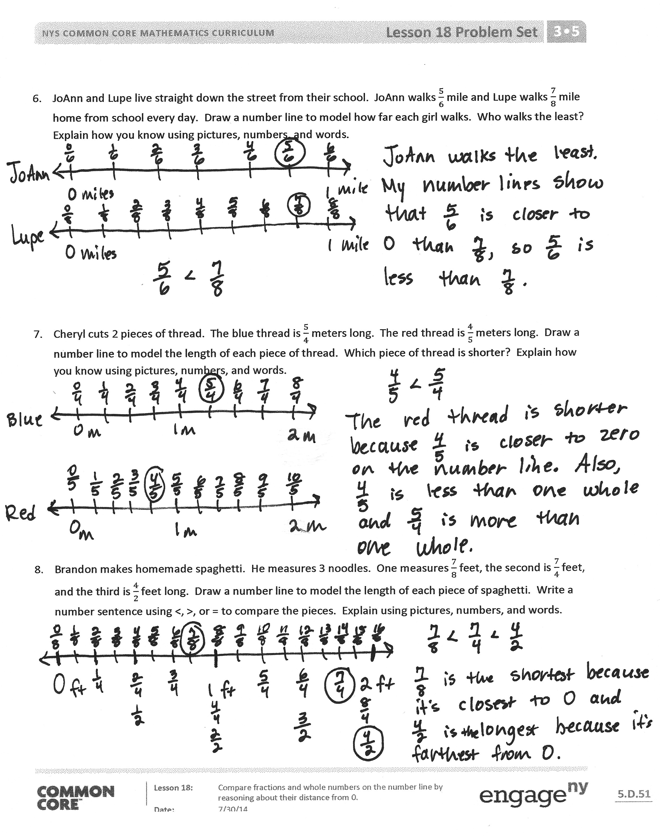 NYS COMMON CORE MATHEMATICS CURRICULUM Lesson 18 Problem Set 3•5
6. JoAnn and Lupe live straight down the street from their school. JoAnn walks 5/6 mile and Lupe walks 7/8 mile
home from school every day. Draw a number line to model how far each girl walks. Who walks the least?
Explain how you know using pictures, numbers, and words.
0/6 1/6 2/6 3/6 4/6 5/6 6/6
JoAnn
0 miles 1 mile
0/8 1/8 2/8 3/8 4/8 5/8 6/8 7/8 8/8
Lupe
0 miles 1 mile
5/6 < 7/8
JoAnn walks the least.
My number lines show
that 5/6 is closer to
0 than 7/8, so 5/6 is
less than 7/8.
7. Cheryl cuts 2 pieces of thread. The blue thread is 5/4 meters long. The red thread is 4/5 meters long. Draw a
number line to model the length of each piece of thread. Which piece of thread is shorter? Explain how
you know using pictures, numbers, and words.
0/4 1/4 2/4 3/4 4/4 5/4 6/4 7/4 8/4
Blue
0 m 1 m 2 m
0/5 1/5 2/5 3/5 4/5 5/5 6/5 7/5 8/5 9/5 10/5
Red
0 m 1 m 2 m
4/5 < 5/4
The red thread is shorter
because 4/5 is closer to zero
on the number line. Also,
4/5 is less than one whole
and 5/4 is more than
one whole.
8. Brandon makes homemade spaghetti. He measures 3 noodles. One measures 7/8 feet, the second is 7/4 feet,
and the third is 4/2 feet long. Draw a number line to model the length of each piece of spaghetti. Write a
number sentence using <, >, or = to compare the pieces. Explain using pictures, numbers, and words.
0/8 1/8 2/8 3/8 4/8 5/8 6/8 7/8 8/8 9/8 10/8 11/8 12/8 13/8 14/8 15/8 16/8
0 ft 1/4 2/4 3/4 1 ft 5/4 6/4 7/4 2 ft
4/4 8/4
1/2 2/2 3/2 4/2
7/8 < 7/4 < 4/2
7/8 is the shortest because
it's closest to 0 and
4/2 is the longest because it's
farthest from 0.
COMMON
CORE™
Lesson 18: Compare fractions and whole numbers on the number line by
reasoning about their distance from 0.
Date: 7/30/14
engage ny
5.D.51